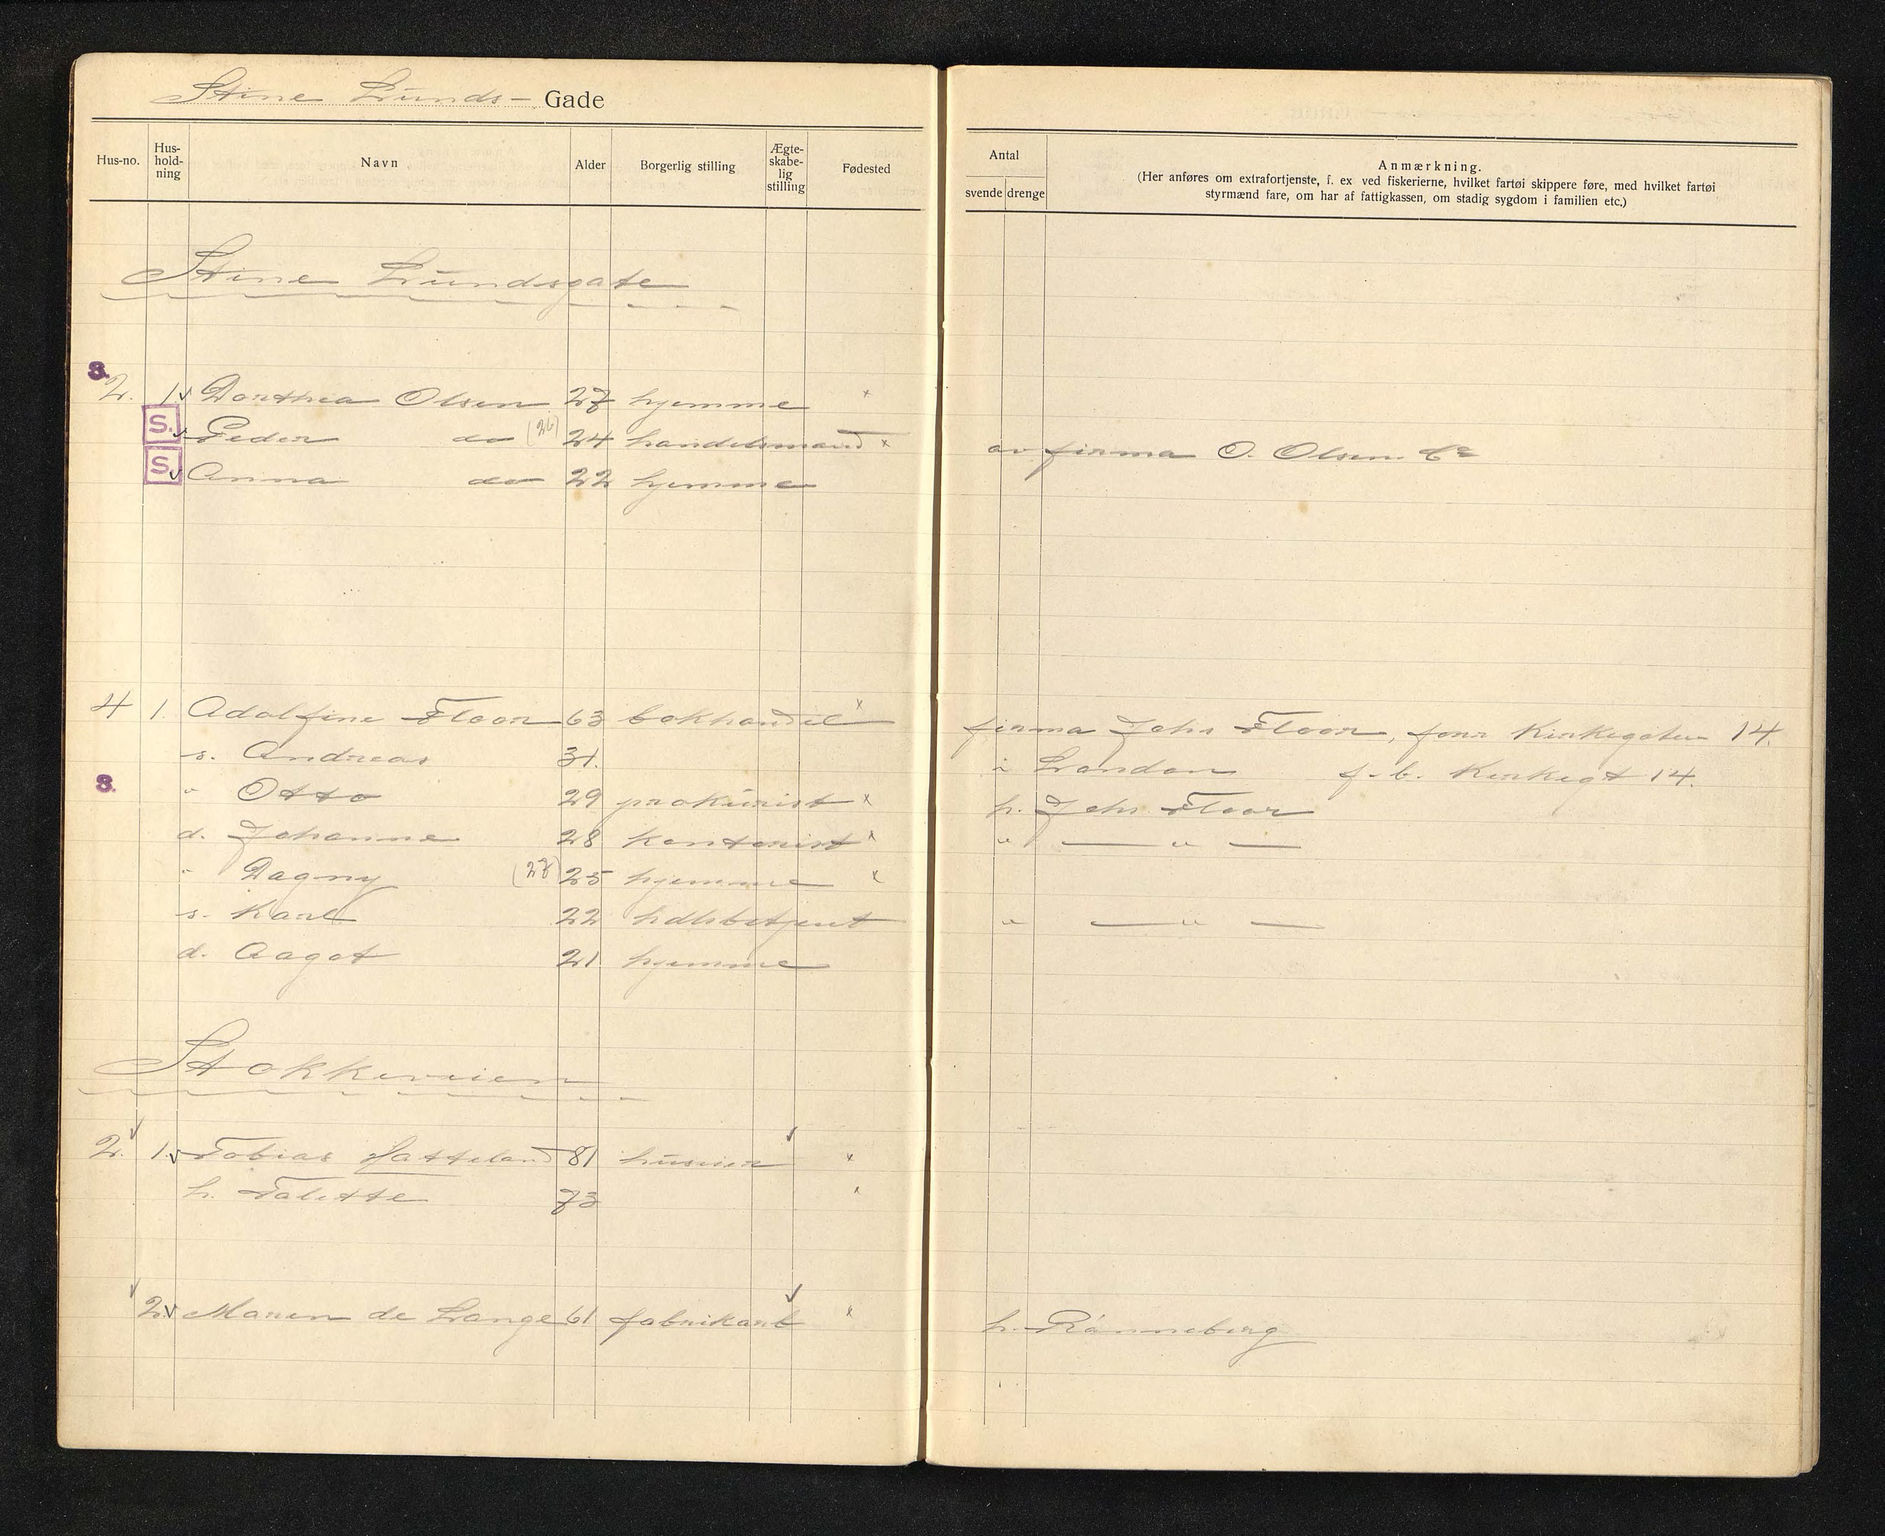 Stine Lunds- Gade
Hus-no. Hus-hold-ning Navn Alder Borgerlig stilling Ægte-skabe-lig stilling Fødested
Antal
svende drenge
Anmærkning.
(Her anføres om extrafortjenste, f. ex ved fiskerierne, hvilket fartøi skippere føre, med hvilket fartøi
styrmænd fare, om har af fattigkassen, om stadig sygdom i familien etc.)
Stine Lundsgate
S.
2. 1 v Dorthea Olsen 27 hjemme x
S. v Peder do (26) 24 handelsmand x av firma O. Olsen & Co
S. v Anna do 22 hjemme
4 1. Adolfine Floor 63 bokhandel x firma Johs Floor, forr Kirkegaten 14.
s. Andreas 31. i London f. b. Kirkegt 14.
S. " Otto 29 prokurist x h. Johs Floor
d. Johanne 28 kontorist x " — " —
" Dagny (27) 25 hjemme x
s. Karl 22 hdlsbetjent " — " —
d. Aagot 21 hjemme
Stokkeveien
2. 1. v Tobias Hatteland 81 huseier x
h. Talette 73 x
2. v Maren de Lange 61 fabrikarb x h. Rønneberg